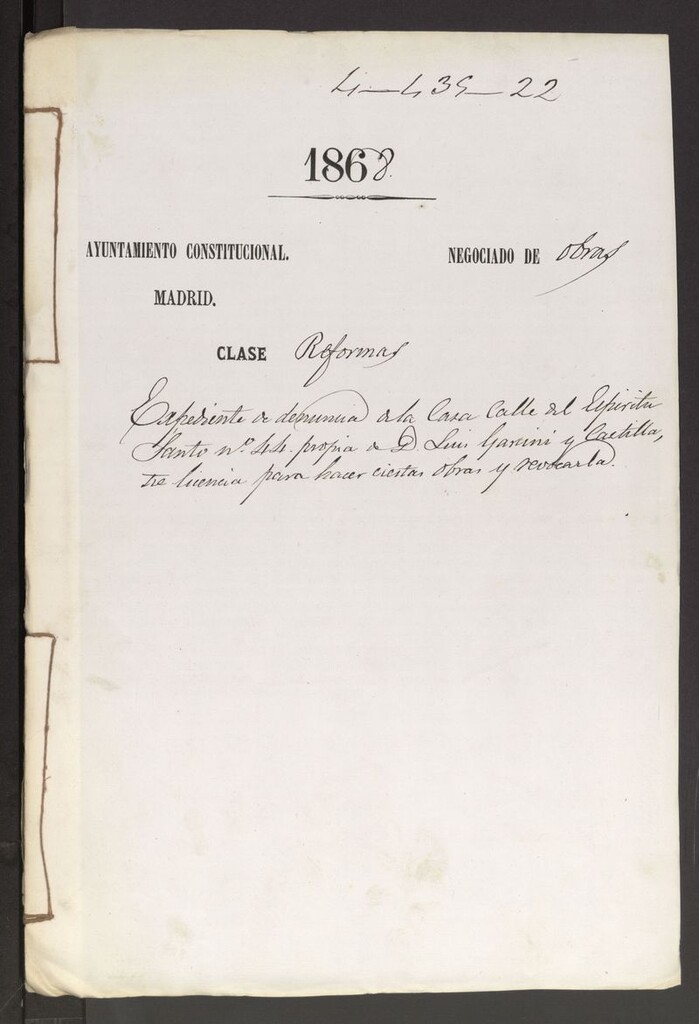 4-439-22
1868.
AYUNTAMIENTO CONSTITUCIONAL.
NEGOCIADO DE obras
MADRID.
CLASE Reformas
Expediente de denuncia de la Casa Calle del Espiritu
Santo nº 44. propia de D. Luis Garcini y Castilla,
sre licencia para hacer ciertas obras y revocarla.